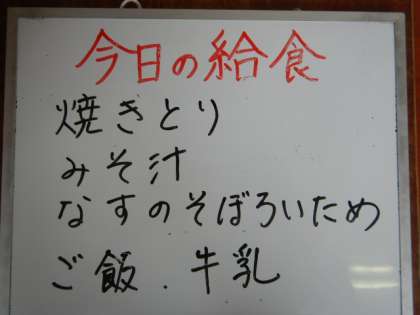 今日の給食
焼きとり
みそ汁
なすのそぼろいため
ご飯.牛乳